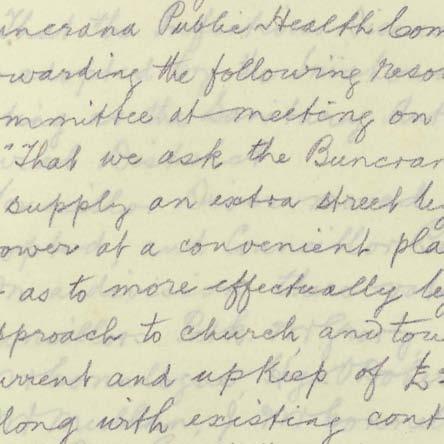 uncrana Public Health Com
warding the following reso
mmittee at meeting on
"That we ask the Buncran
supply an extra street lig
ower at a convenient pla
as to more effectually lig
pproach to church and tow
urrent and upkeep of £
long with existing cont